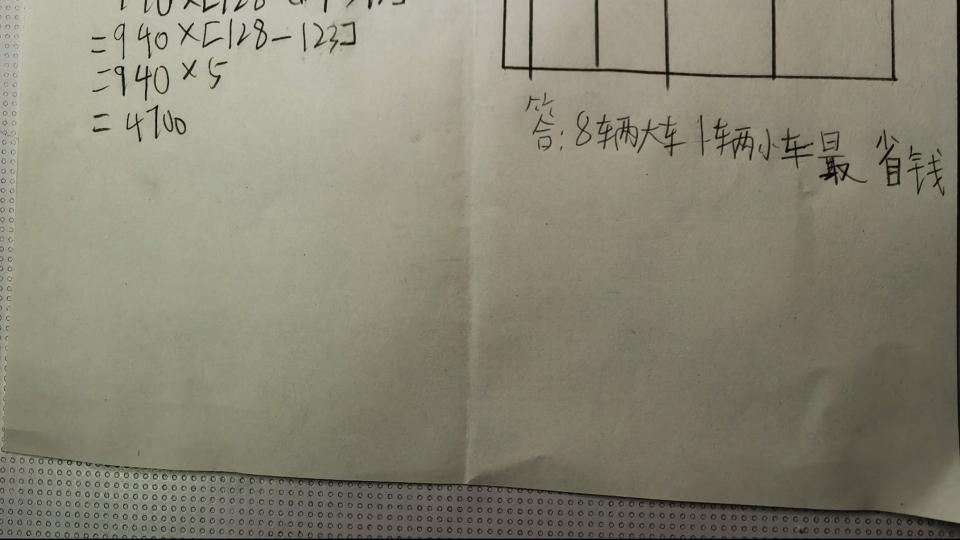 =940×[128-123]
=940×5
=4700
答:8车两大车1车两小车最省钱